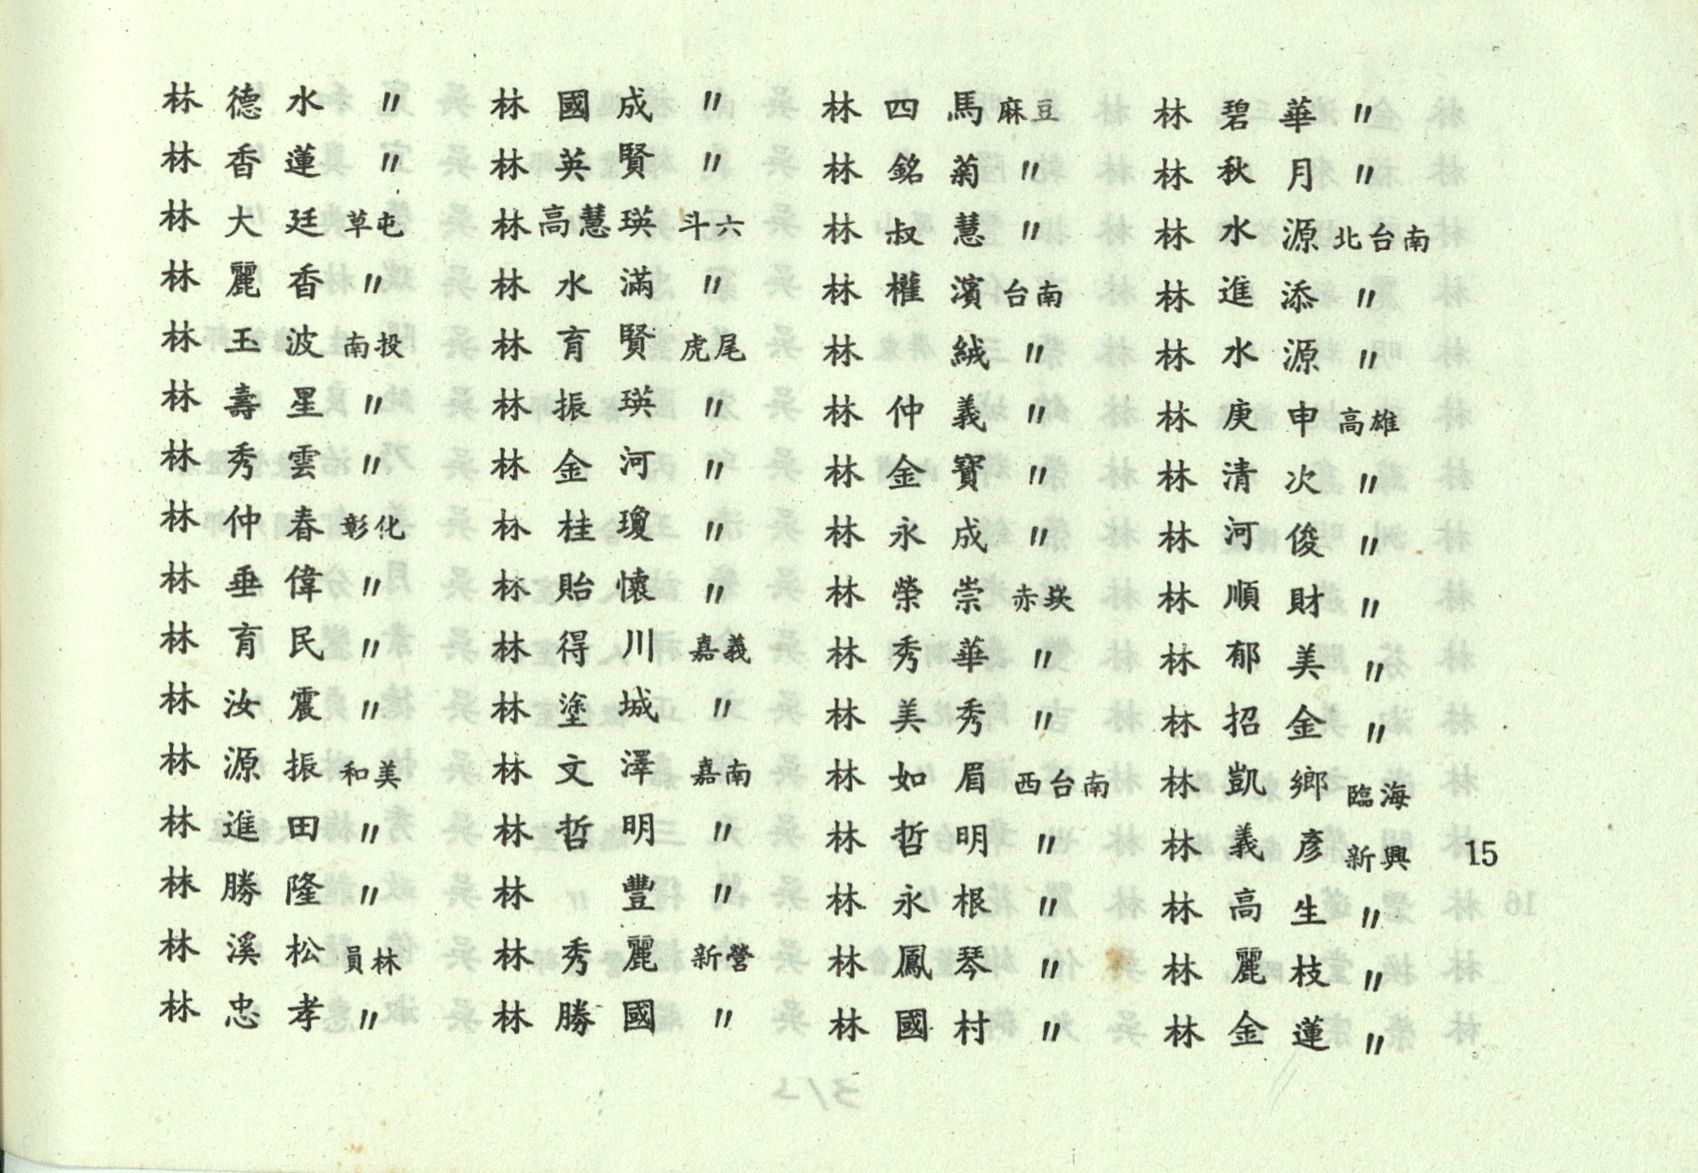 林德水 〃
林香蓮 〃
林大廷 草屯
林麗香 〃
林玉波 南投
林壽星 〃
林秀雲 〃
林仲春 彰化
林垂偉 〃
林育民 〃
林汝震 〃
林源振 和美
林進田 〃
林勝隆 〃
林溪松 員林
林忠孝 〃
林國成 〃
林英賢 〃
林高慧瑛 斗六
林水滿 〃
林育賢 虎尾
林振瑛 〃
林金河 〃
林桂瓊 〃
林貽懷 〃
林得川 嘉義
林塗城 〃
林文澤 嘉南
林哲明 〃
林豐 〃
林秀麗 新營
林勝國 〃
林四馬 麻豆
林銘菊 〃
林叔慧 〃
林權濱 台南
林絨 〃
林仲義 〃
林金寶 〃
林永成 〃
林榮崇 赤崁
林秀華 〃
林美秀 〃
林如眉 西台南
林哲明 〃
林永根 〃
林鳳琴 〃
林國村 〃
林碧華 〃
林秋月 〃
林水源 北台南
林進添 〃
林水源 〃
林庚申 高雄
林清次 〃
林河俊 〃
林順財 〃
林郁美 〃
林招金 〃
林凱鄉 臨海
林義彥 新興
林高生 〃
林麗枝 〃
林金蓮 〃
15